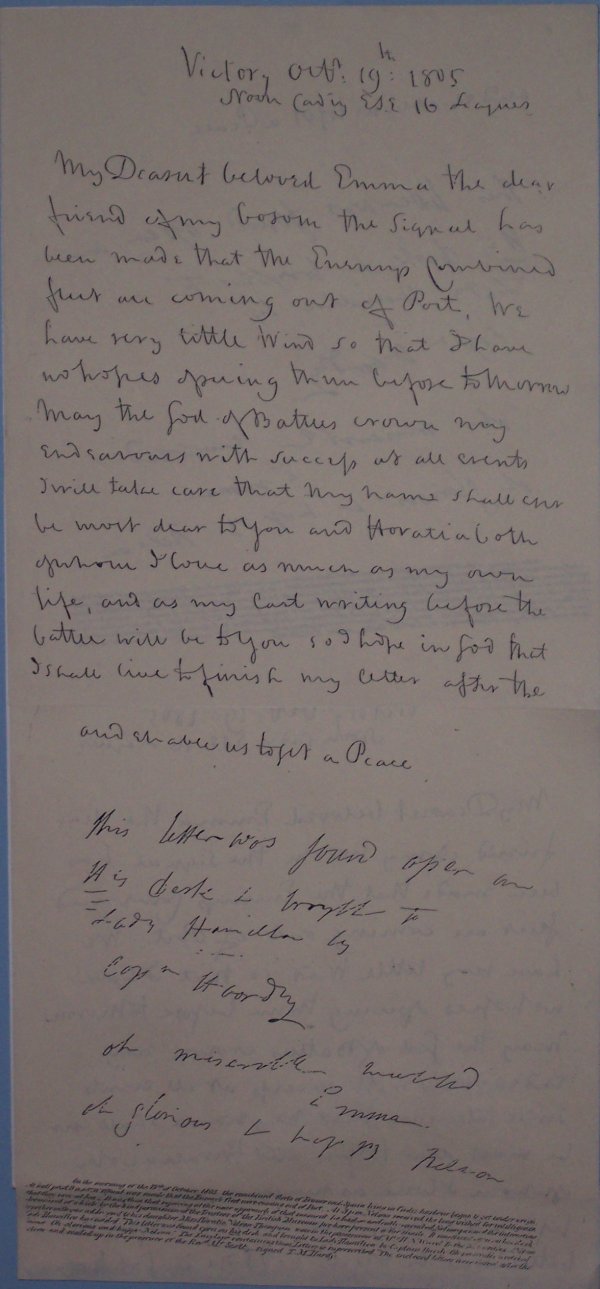 Victory Octr: 19th: 1805
Noon Cadiz ESE 16 Leagues
My Dearest beloved Emma the dear
friend of my bosom the Signal has
been made that the Enemys Combined
fleet are coming out of Port, We
have very little Wind so that I have
no hopes of seeing them before tomorrow
May the God of Battles crown my
Endeavours with success at all events
I will take care that my name shall ever
be most dear to You and Horatia both
of whom I love as much as my own
life, and as my last writing before the
battle will be to You so I hope in God that
I shall live to finish my letter after the
and enable us to get a Peace
This letter was found open on
His Desk & brought to
Lady Hamilton by
Capn Hardy
oh miserable wretched
Emma
oh glorious & happy Nelson